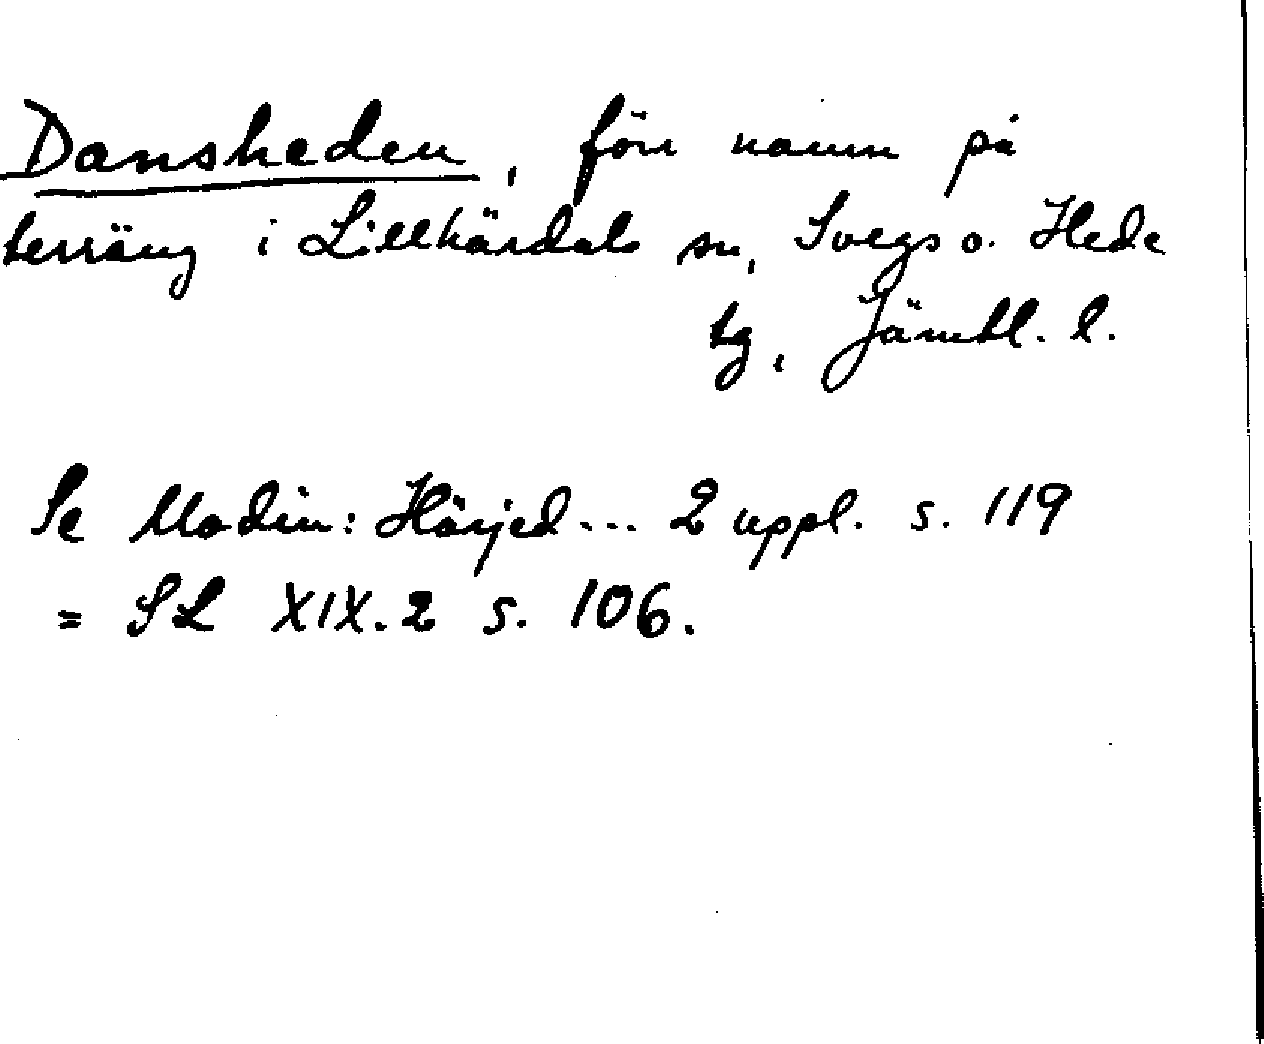 Dansheden, förr namn på
terräng i Lillhärdals sn, Svegs o. Hede
tg, Jämtl. l.
Se Modin: Härjed... 2 uppl. s. 119
= SL XIX.2 s. 106.